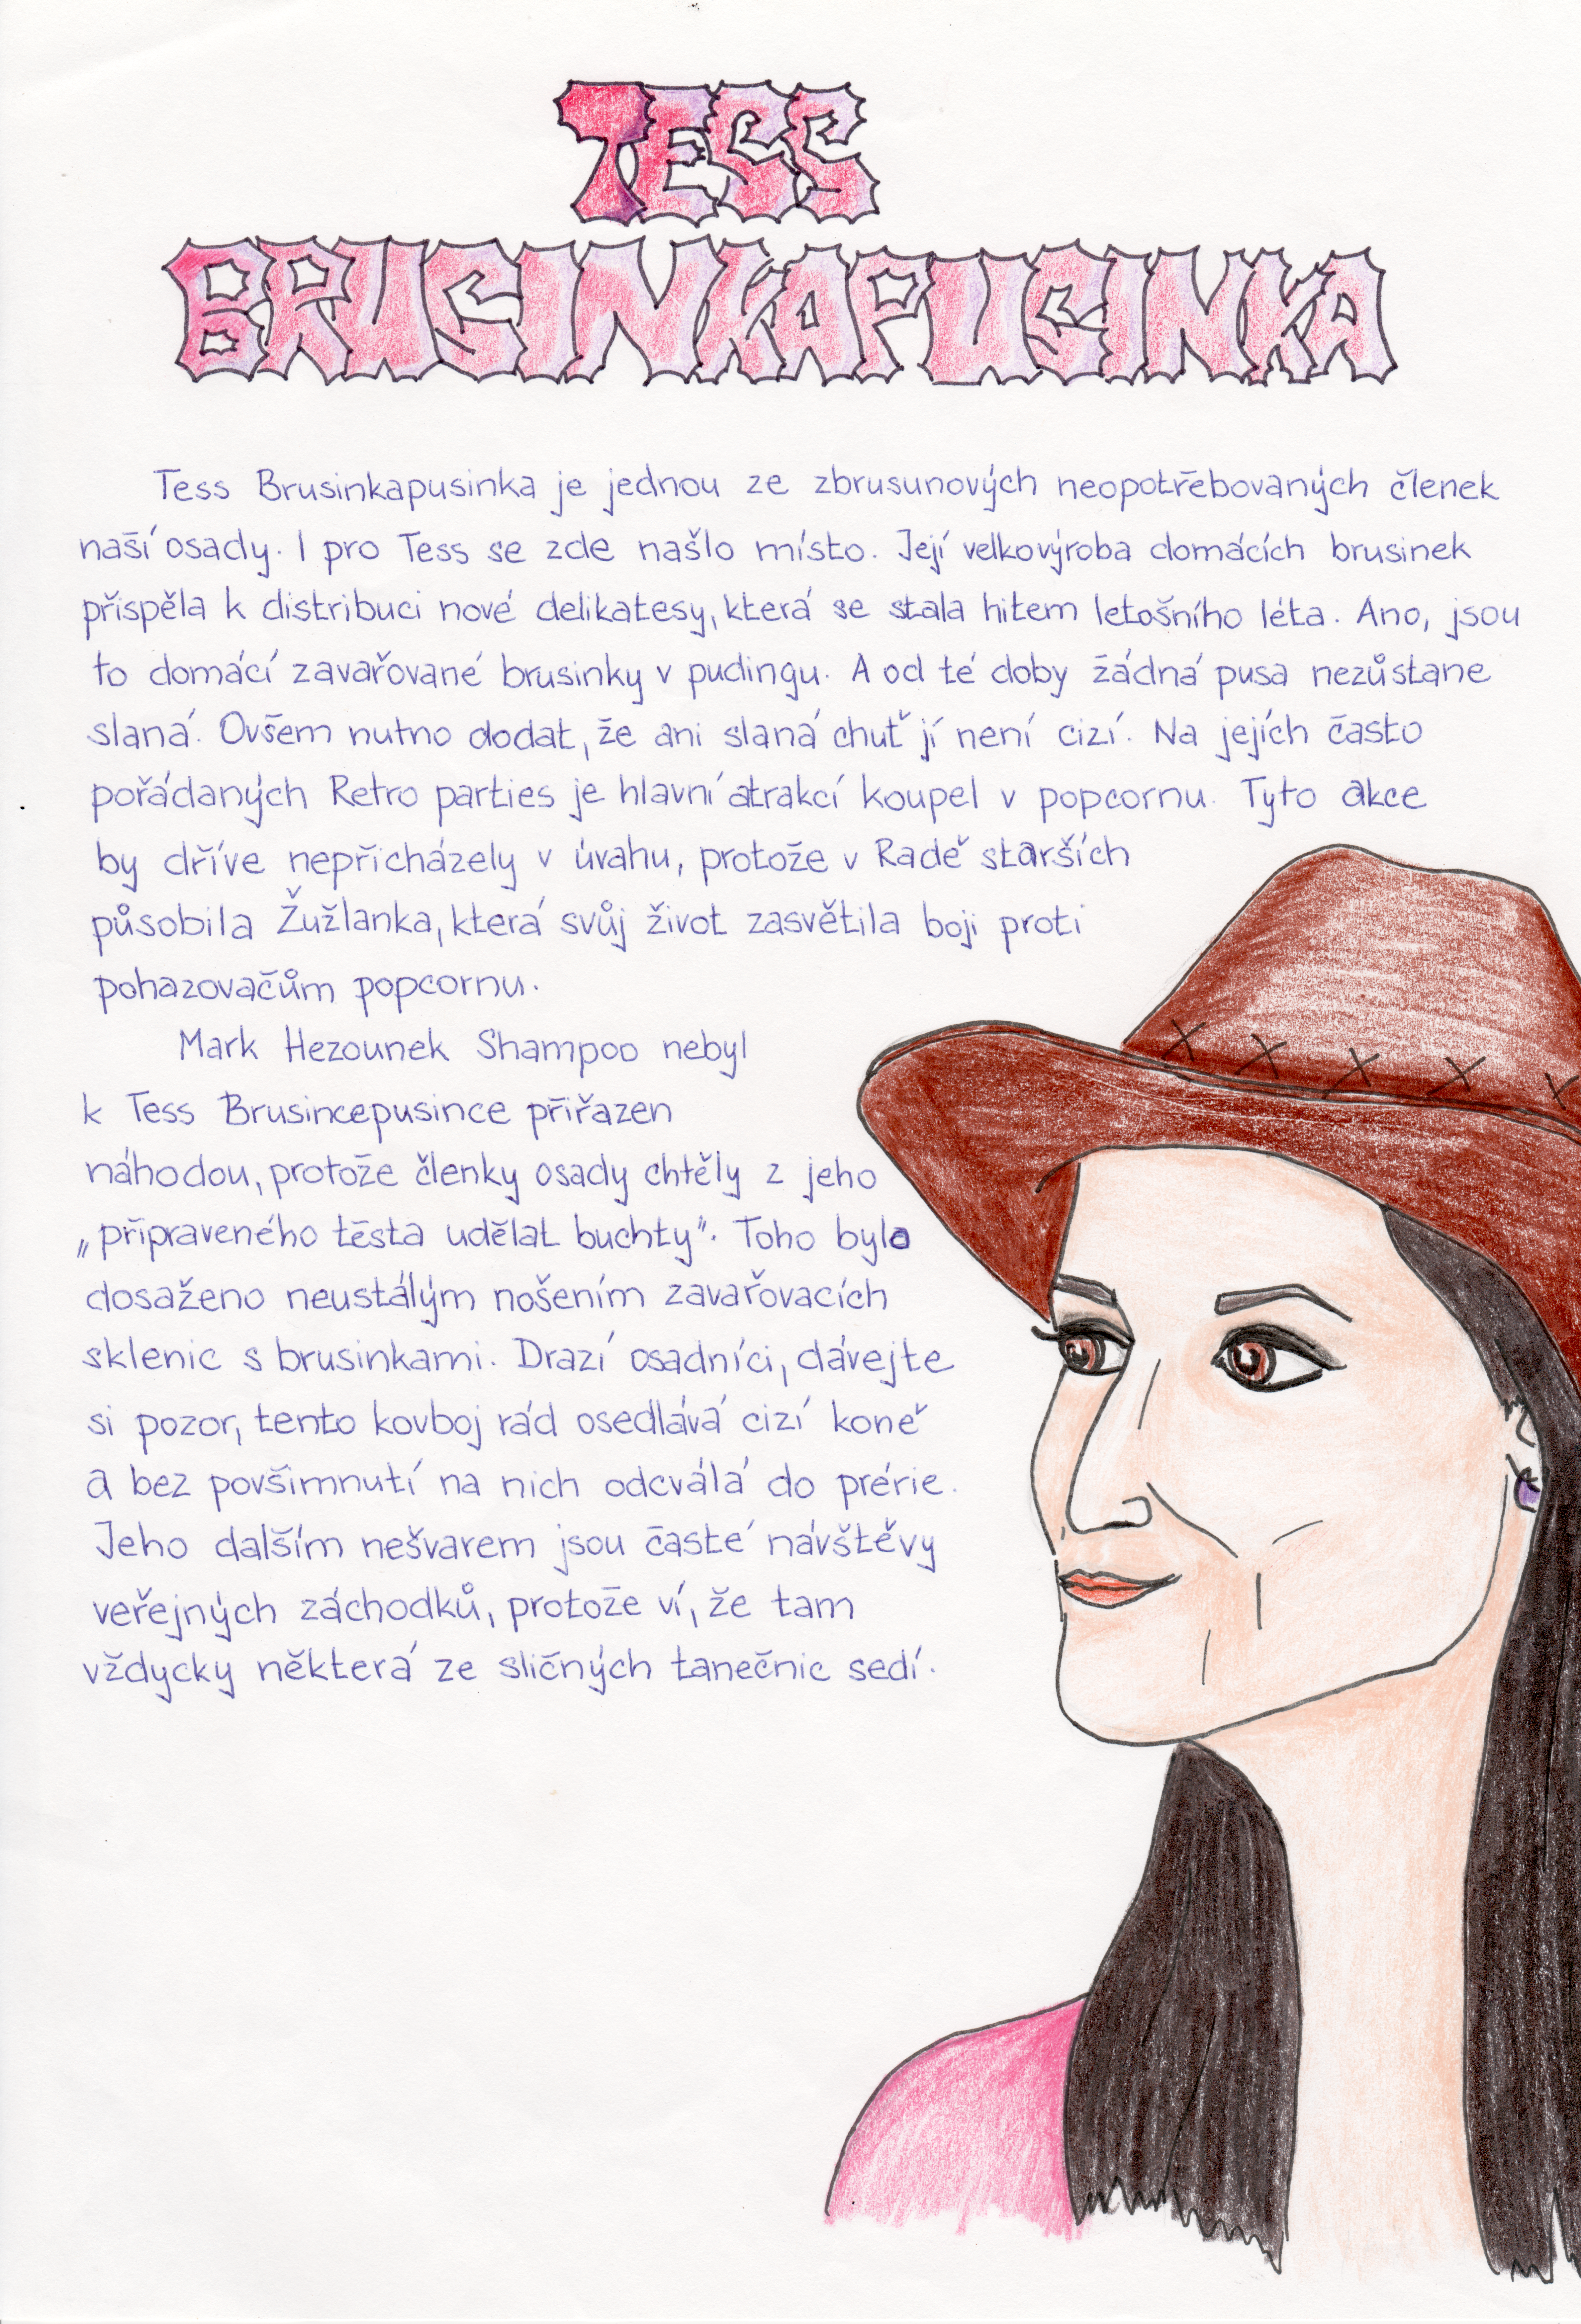 TESS
BRUSINKAPUSINKA
Tess Brusinkapusinka je jednou ze zbrusunových neopotřebovaných členek
naší osady. I pro Tess se zde našlo místo. Její velkovýroba domácích brusinek
přispěla k distribuci nové delikatesy, která se stala hitem letošního léta. Ano, jsou
to domácí zavařované brusinky v pudingu. A od té doby žádná pusa nezůstane
slaná. Ovšem nutno dodat, že ani slaná chuť jí není cizí. Na jejích často
pořádaných Retro parties je hlavní atrakcí koupel v popcornu. Tyto akce
by dříve nepřicházely v úvahu, protože v Radě starších
působila Žužlanka, která svůj život zasvětila boji proti
pohazovačům popcornu.
Mark Hezounek Shampoo nebyl
k Tess Brusincepusince přiřazen
náhodou, protože členky osady chtěly z jeho
„připraveného těsta udělat buchty". Toho bylo
dosaženo neustálým nošením zavařovacích
sklenic s brusinkami. Drazí osadníci, dávejte
si pozor, tento kovboj rád osedlává cizí koně
a bez povšimnutí na nich odcválá do prérie.
Jeho dalším nešvarem jsou časté návštěvy
veřejných záchodků, protože ví, že tam
vždycky některá ze sličných tanečnic sedí.